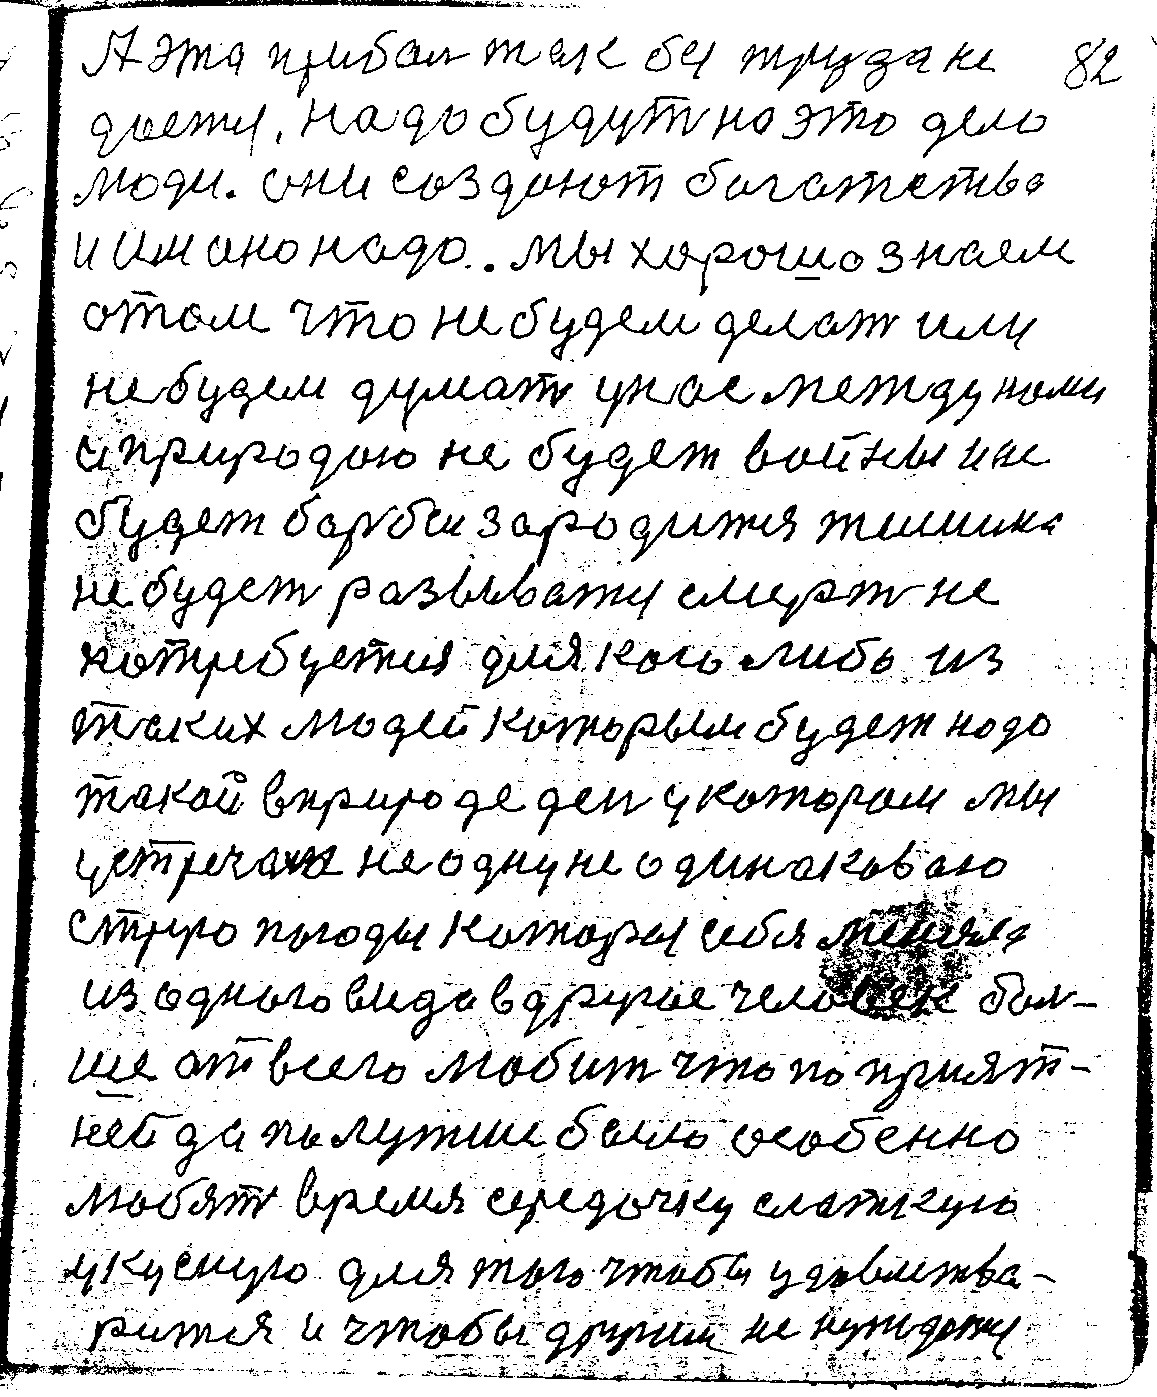 А эта прибал так бы труда не 82
даеты, надо будут на это дело
люди. они создают богатства
и им оно надо.. мы хорошо знаем
отом что не будем делат или
не будем думат у нас между нами
и природою не будет войны и не
будет барбы зародится тишина
не будет развывати смерт не
потребуется для кого либо из
таких людей которым будет надо
такой в природе ден у котором мы
устречали не одну не одинаковаю
струю погоды которы себя меняла
из одного вида в другое человек бол-
ше от всего любит что по прият-
ней да по лутши было особенно
любят время середочку слаткую
укусную для того чтобы удовлетва-
рится и чтобы другим не нуждаты